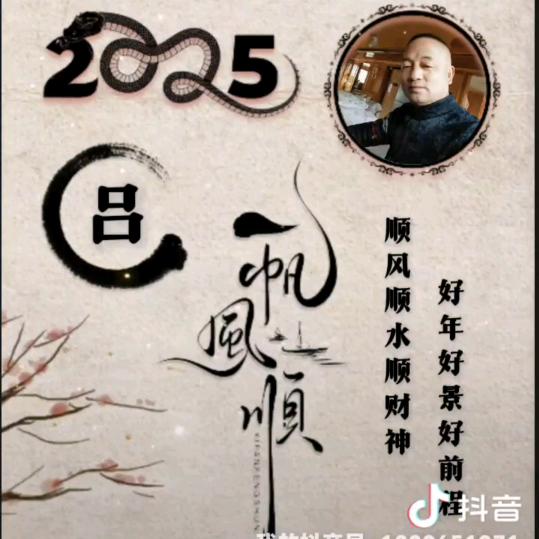 2025
吕
一帆風順
YIFANFENGSHUN
顺风顺水顺财神
好年好景好前程
抖音